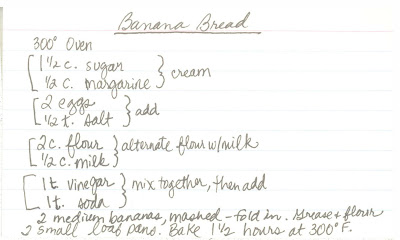 Banana Bread
300° Oven
1 1/2 c. sugar
1/2 c. margarine } cream
2 eggs
1/2 t. salt } add
2 c. flour } alternate flour w/milk
1/2 c. milk
1 t. vinegar } mix together, then add
1 t. soda
2 medium bananas, mashed - fold in. Grease & flour
2 small loaf pans. Bake 1 1/2 hours at 300° F.